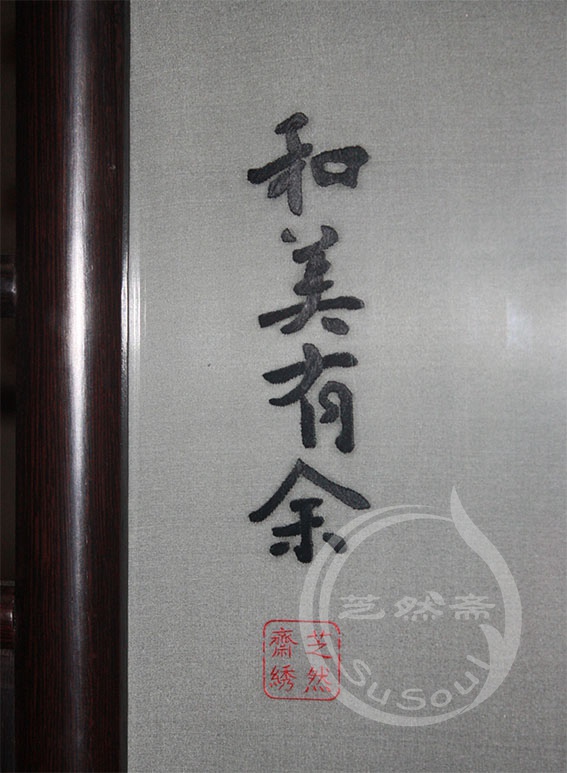 和美有余
芝然
齋绣
芝然斋
SuSoul